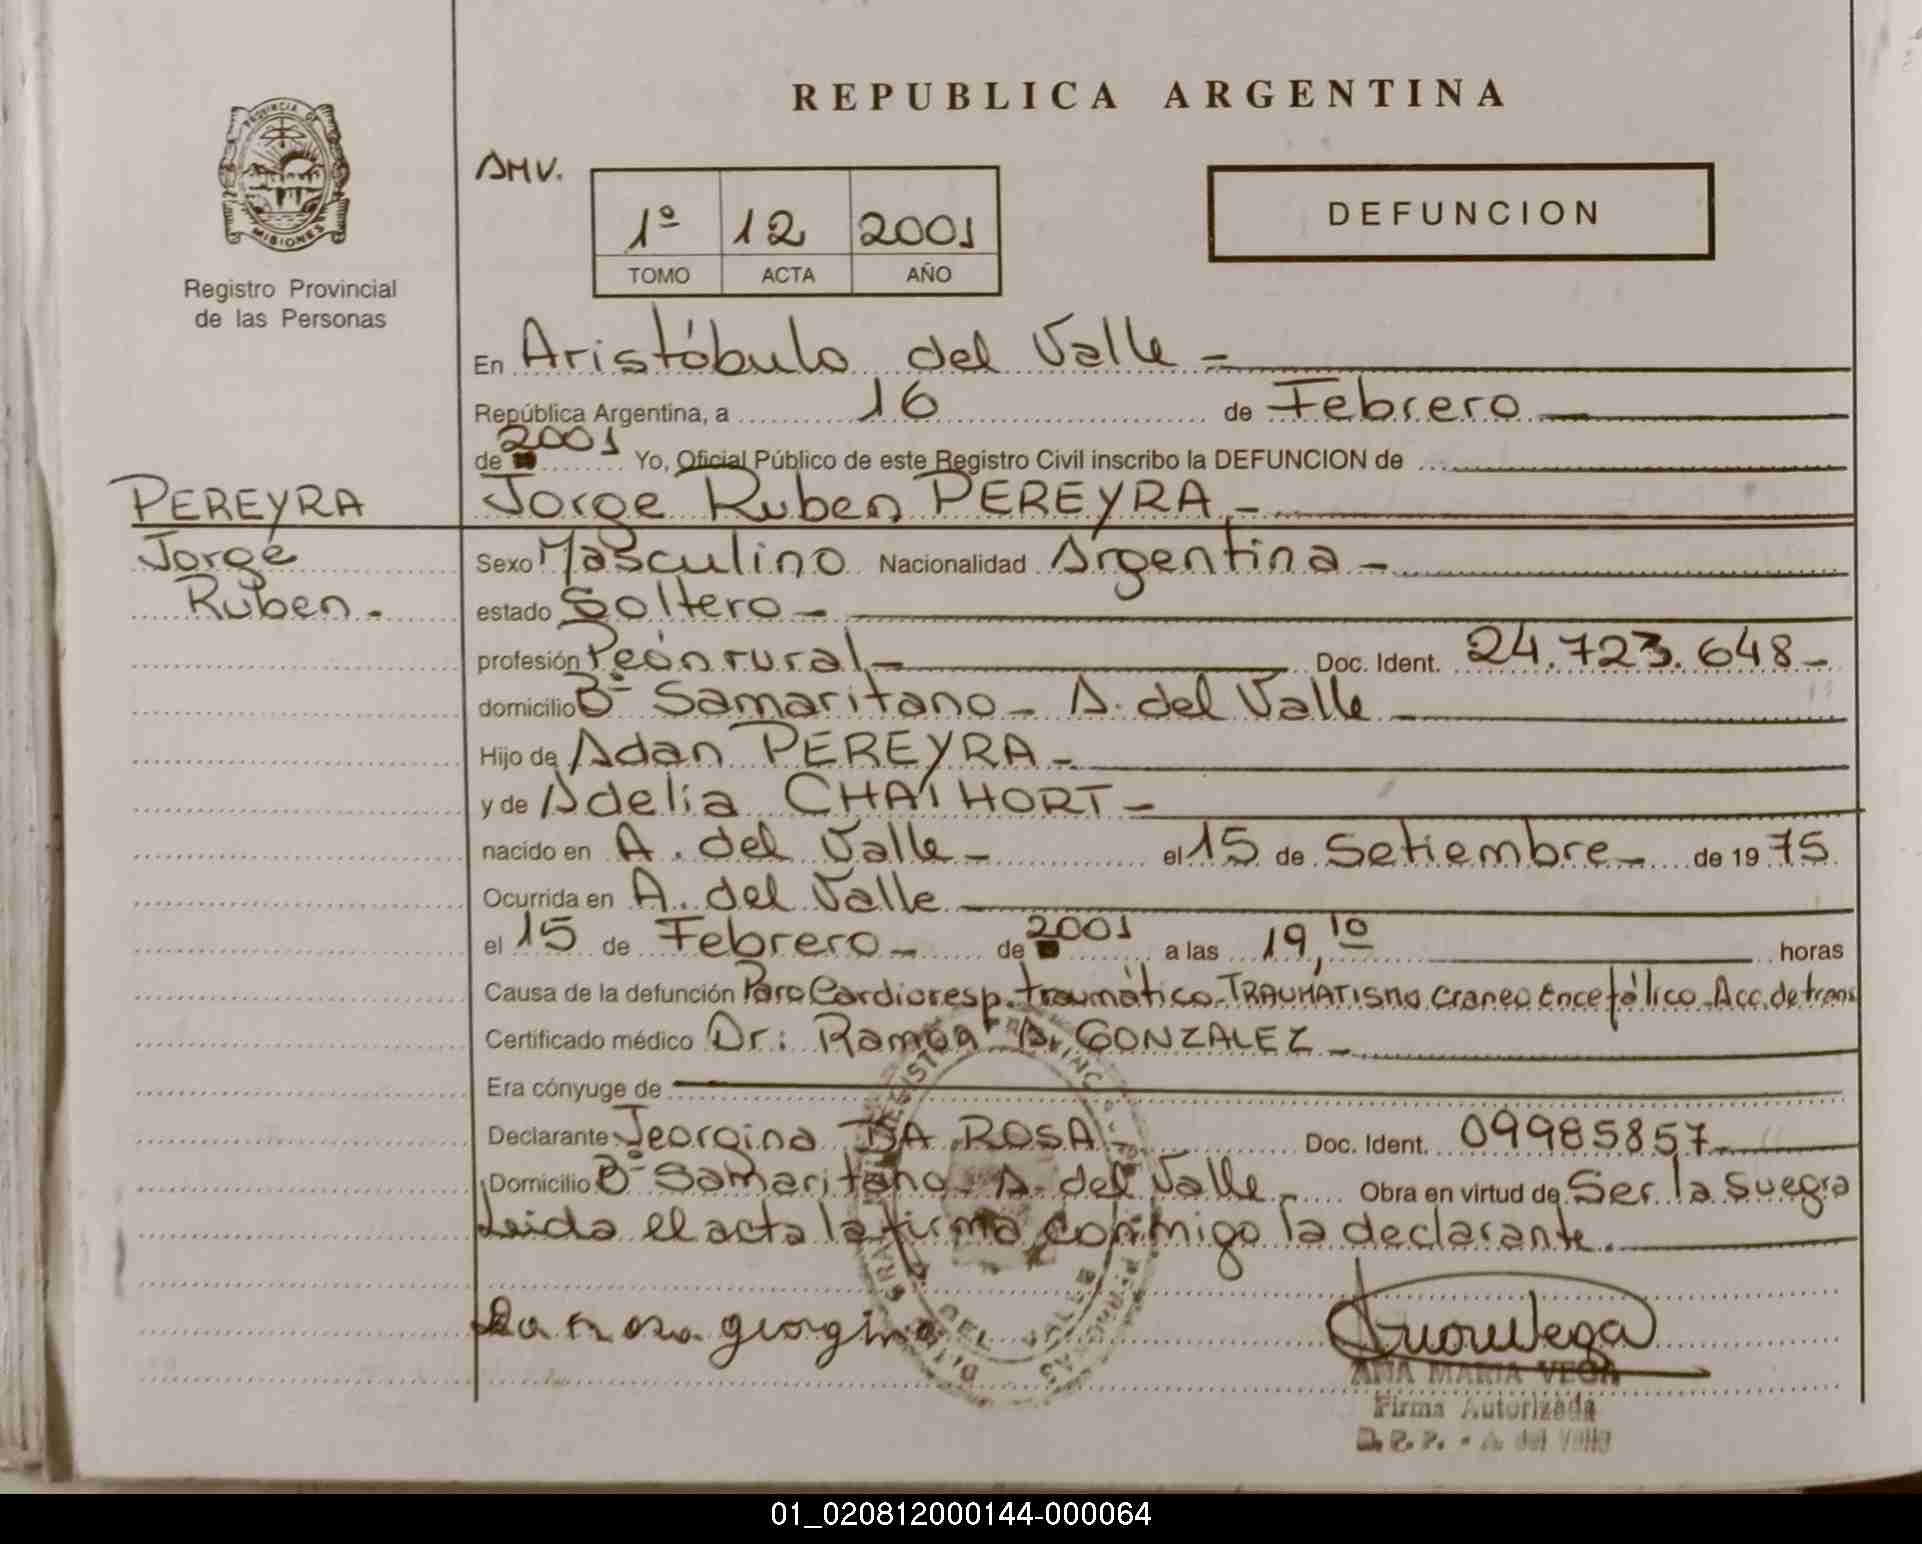 REPUBLICA ARGENTINA
PROVINCIA DE
MISIONES
Registro Provincial
de las Personas
AMV.
1º 12 2001
TOMO ACTA AÑO
DEFUNCION
En Aristóbulo del Valle -
República Argentina, a 16 de Febrero
de 2001 Yo, Oficial Público de este Registro Civil inscribo la DEFUNCION de
PEREYRA Jorge Ruben PEREYRA.-
Jorge Sexo Masculino Nacionalidad Argentina -
Ruben.- estado Soltero -
profesión Peón rural - Doc. Ident. 24.723.648-
domicilio Bº Samaritano - A. del Valle
Hijo de Adan PEREYRA -
y de Adelia CHAIHORT -
nacido en A. del Valle - el 15 de Setiembre - de 19 75
Ocurrida en A. del Valle
el 15 de Febrero - de 2001 a las 19,10 horas
Causa de la defunción Paro Cardioresp. traumático. TRAUMATISMO craneo Encefálico. Acc. de trans
Certificado médico Dr: Ramón A. GONZALEZ -
Era cónyuge de
Declarante Jeorgina DA ROSA - Doc. Ident. 09985857-
Domicilio Bº Samaritano - A. del Valle - Obra en virtud de Ser la Suegra
Leida el acta la firma conmigo la declarante.
Da rosa georgina
ANA MARIA VEGA
Firma Autorizada
D.P.P. - A. del Valle
01_020812000144-000064